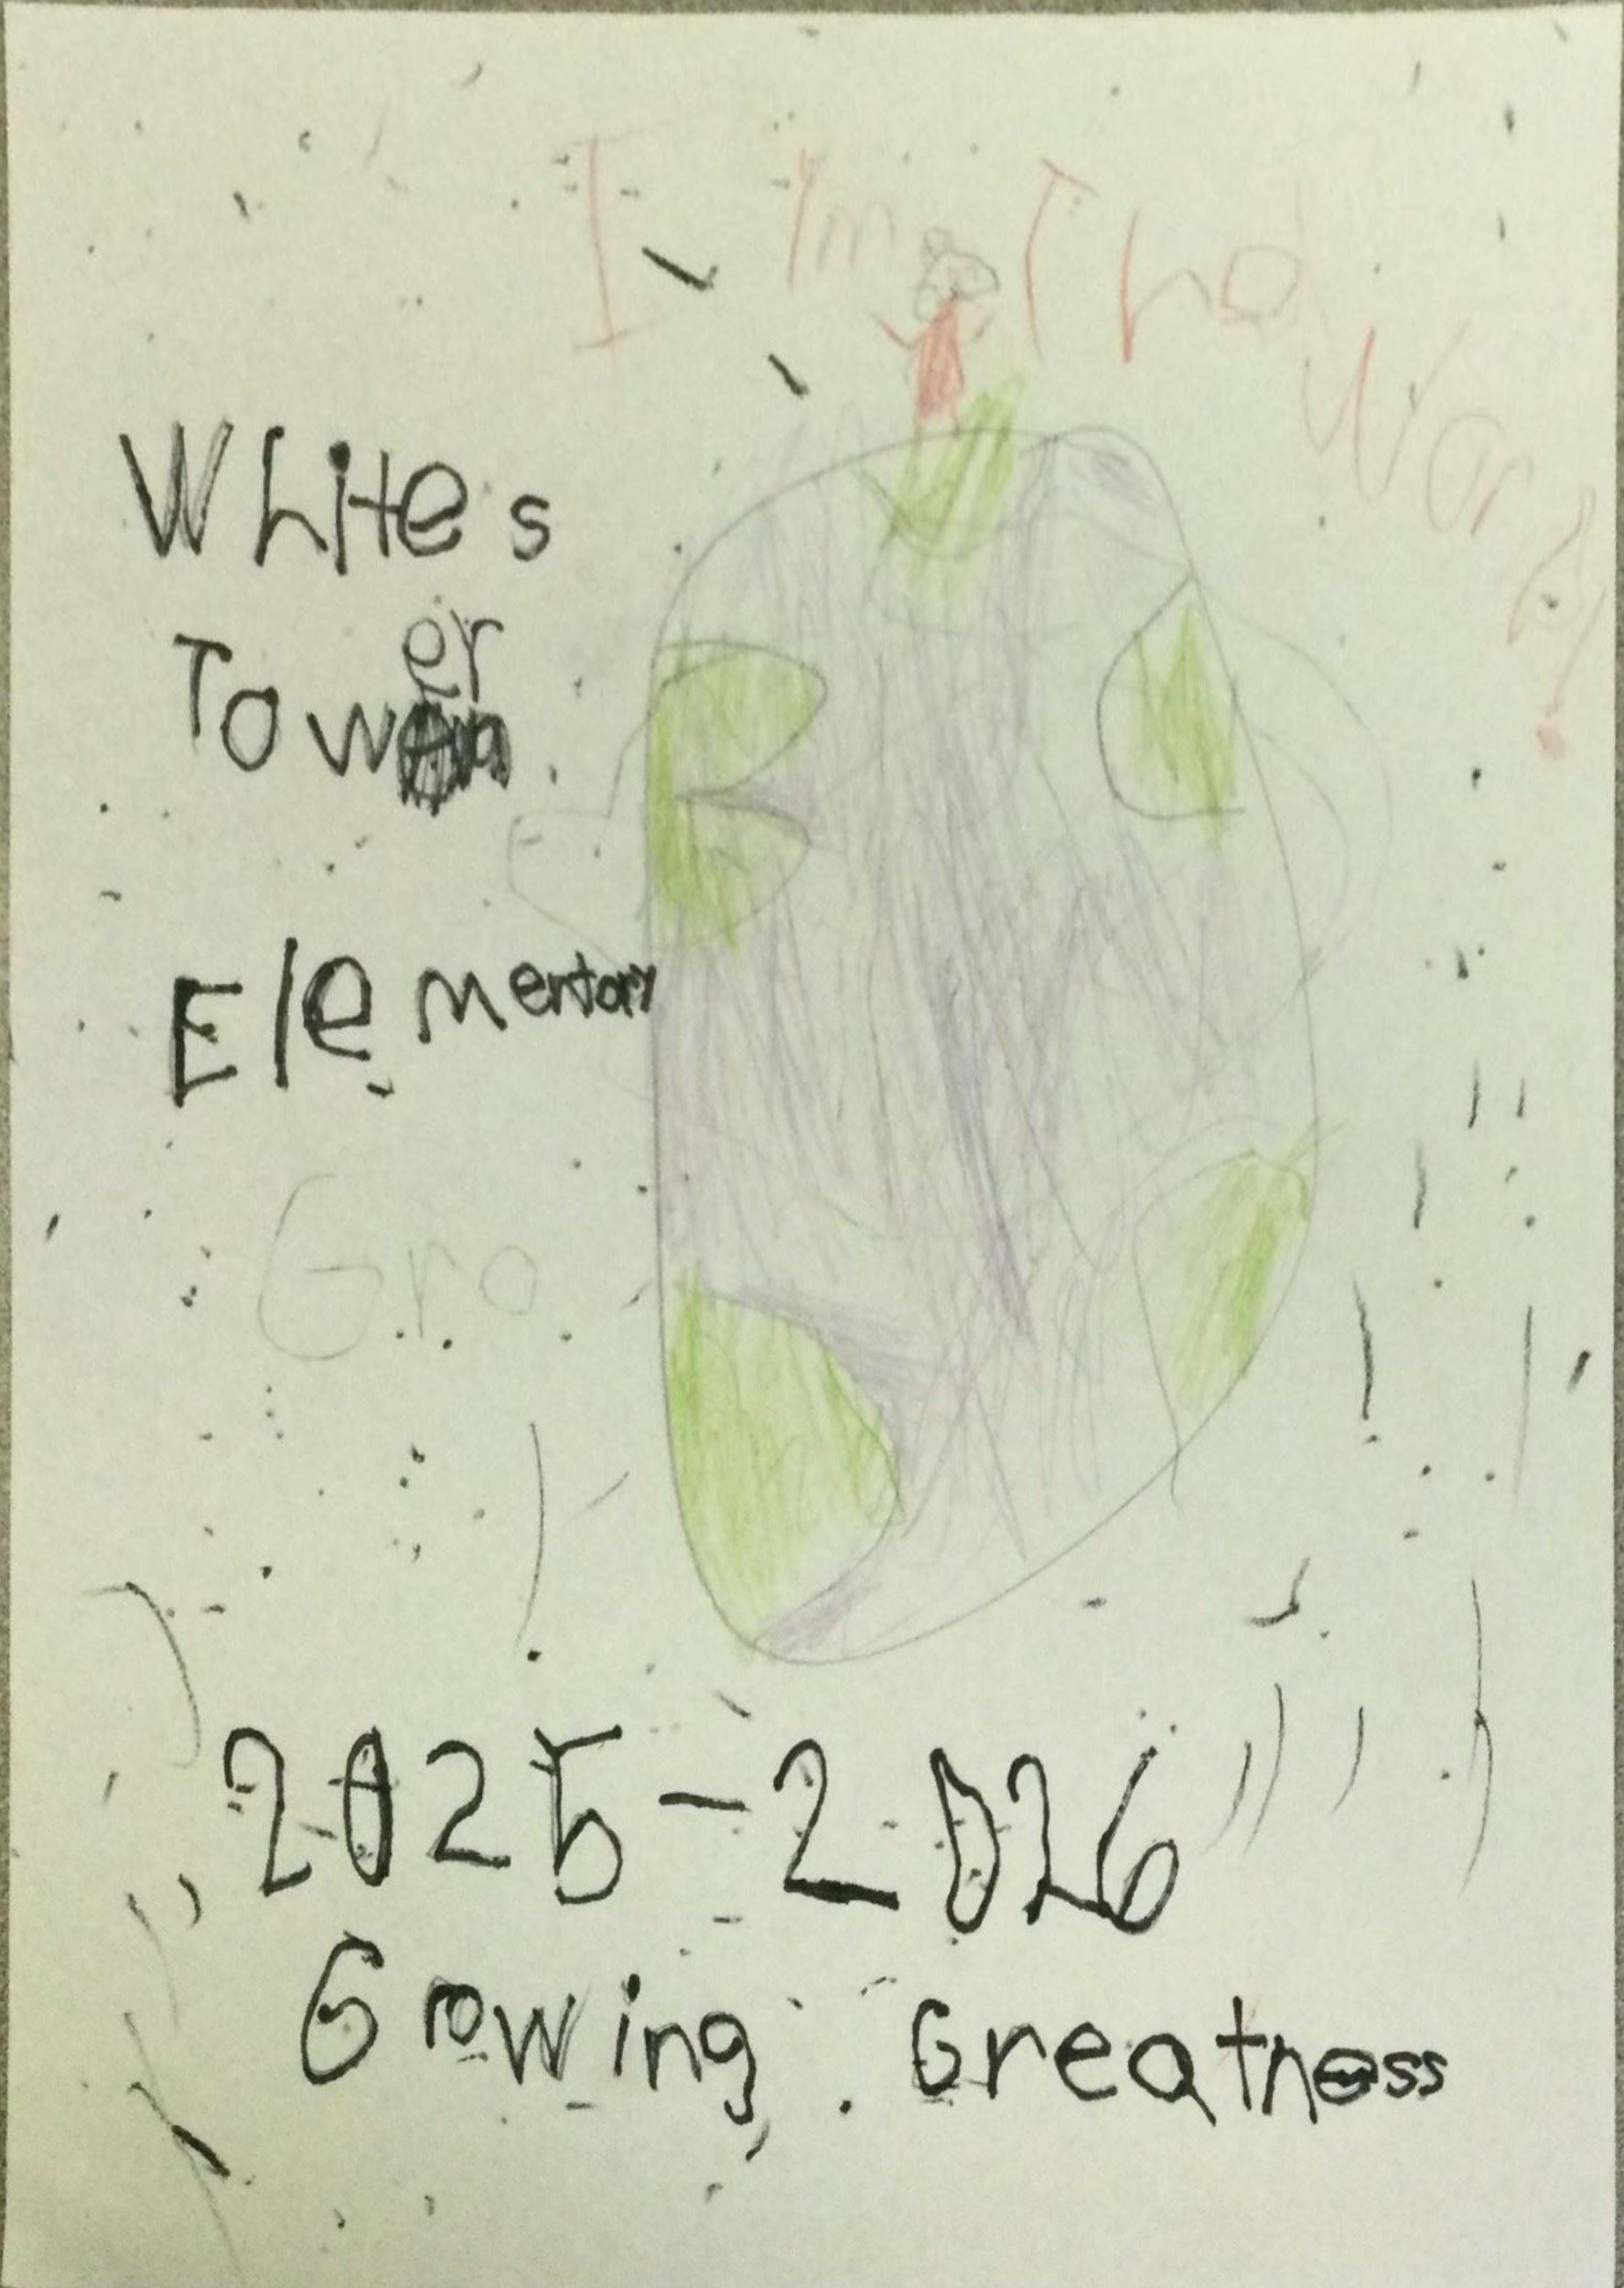 I Im The
World!
Whites
Tower
Elementary
Gro
2025-2026
Growing Greatness